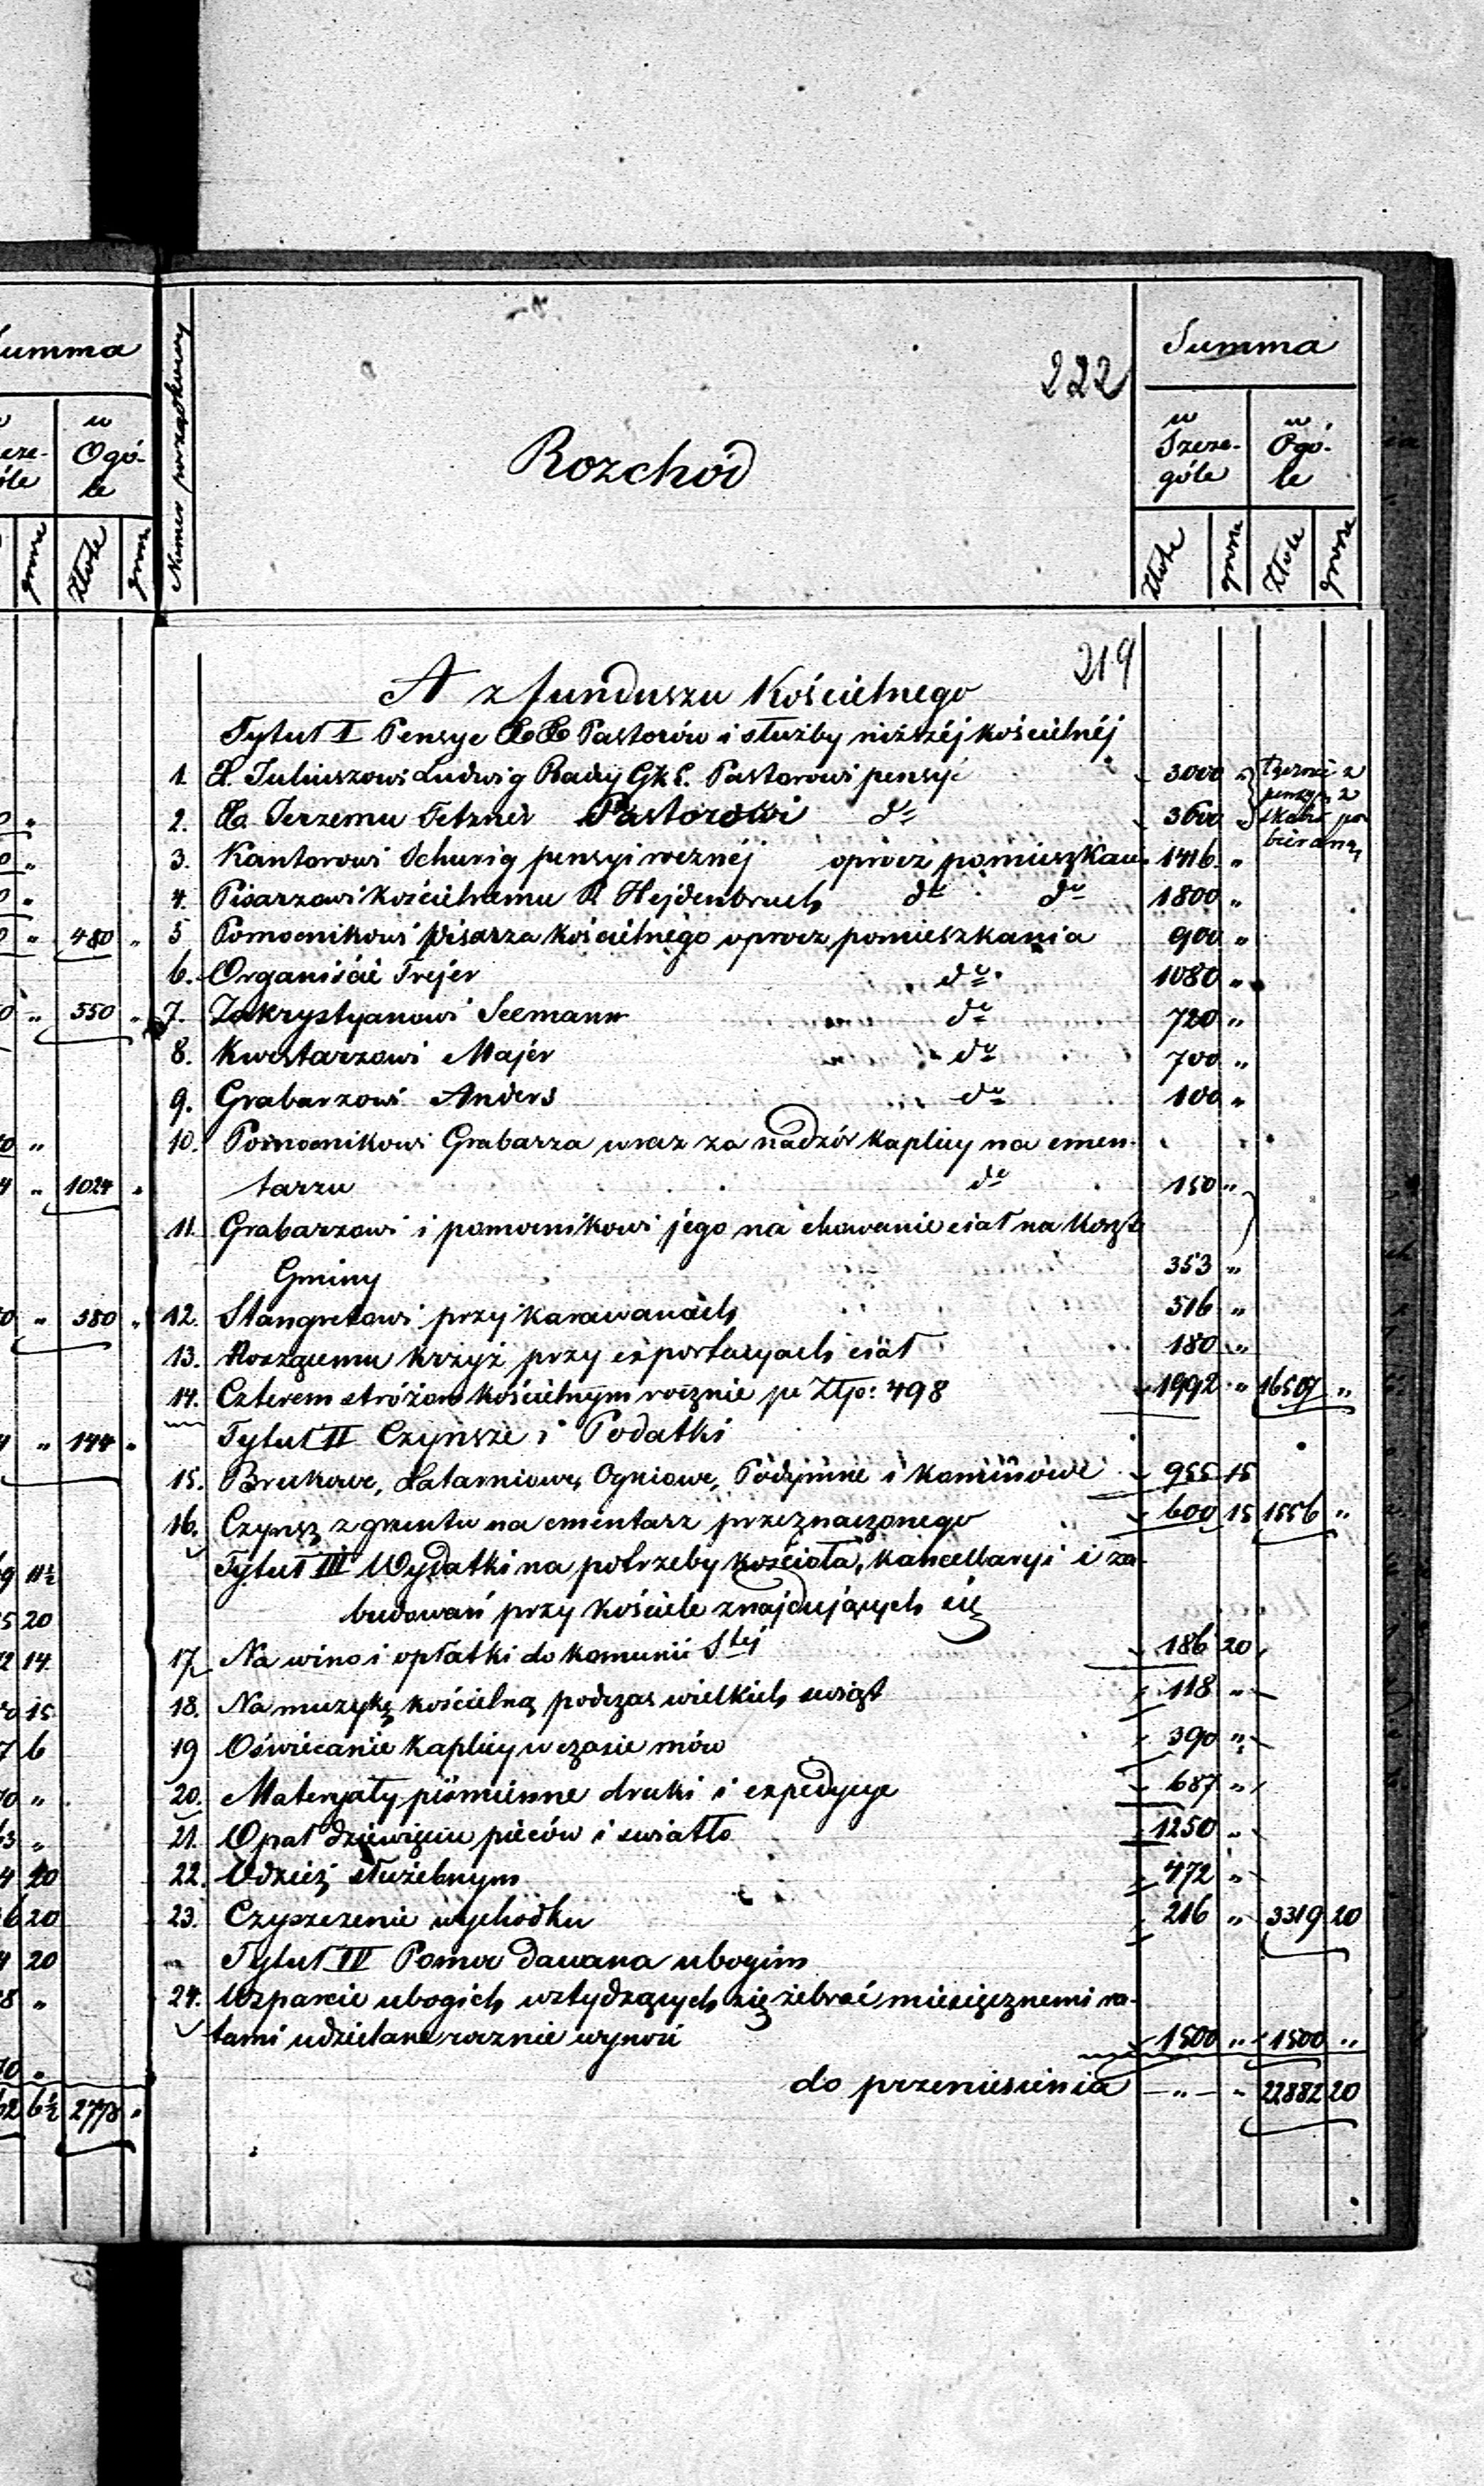 umma
w
Ogó-
le
grosze
Złote
grosze
480 "
550 "
1024 "
380 "
144 "
11½
20
14
15
6
"
"
20
20
20
"
"
6½ 2778 "
Numer porządkowy
222
Rozchód
Summa
w Szcze-góle
w Ogó-le
Złote
grosze
Złote
grosze
219
A z funduszu Kościelnego
Tytuł I Pensye XX Pastorów i służby niższéj kościelnéj
1. X. Juliuszowi Ludwig Radzy Pastorowi pensyi 3000 "
2. X. Jerzemu Tetzner Pastorowi do 3600 "
pensyi z
skarb. po
bieraną
3. Kantorowi Schurig pensyi rocznéj oprócz pomieszkan. 1416 "
4. Pisarzowi kościelnemu P. Hejdenbruch do do 1800 "
5 Pomocnikowi pisarza kościelnego oprocz pomieszkania 900 "
6. Organiście Frejer do 1080 "
7. Zakrystyanowi Seemann do 720 "
8. Kwestarzowi Majer do 700 "
9. Grabarzowi Anders do 100 "
10. Pomocnikowi Grabarza wraz za nadzór kaplicy na cmen-
tarzu do 150 "
11. Grabarzowi i pomocnikowi jego na chowanie ciał na koszt
Gminy 353 "
12. Stangretowi przy karawanach 516 "
13. Noszącemu krzyż przy exportacyach ciał 180 "
14. Czterem stróżom kościelnym rocznie po Złp: 498 1992 " 16507 "
Tytuł II Czynsze i Podatki
15. Brukowe, Latarniowe, Ogniowe, Podymne i kominowe 955 15
16. Czynsz z gruntu na cmentarz przeznaczonego 600 15 1556 "
Tytuł III Wydatki na potrzeby kościoła, kancellaryi i za-
budowań przy kościele znajdujących się
17 Na wino i opłatki do komunii Stej 186 20
18. Na muzykę kościelną podczas wielkich swiąt 118 "
19 Oświecanie kaplicy w czasie mów 390 "
20. Materyały piśmienne druki i expedycye 687 "
21. Opał dziewięciu pieców i swiatło 1250 "
22. Odzież służebnym 472 "
23. Czyszczenie wychodku 216 " 3319 20
Tytuł IV Pomoc dawana ubogim
24. Wsparcie ubogich wstydzących się żebrać miesięcznemi ra-
tami udzielane rocznie wynosi 1500 " 1500 "
do przeniesienia – " – " 22882 20